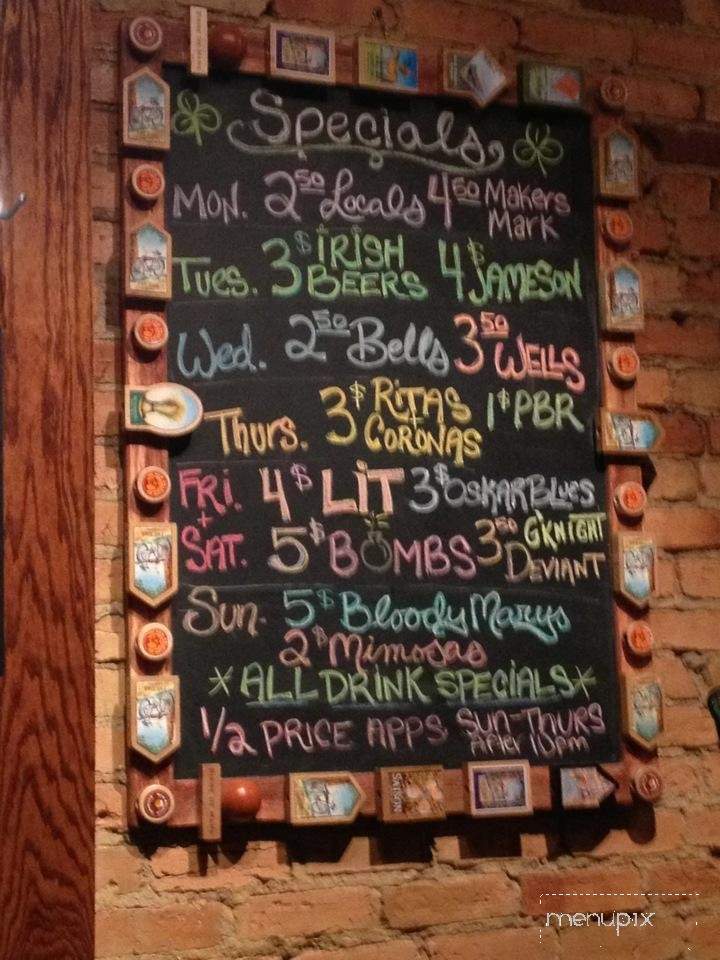 Specials
MON. 2⁵⁰ Locals 4⁵⁰ Makers Mark
Tues. 3$ IRISH BEERS 4$ JAMESON
Wed. 2⁵⁰ Bells 3⁵⁰ WELLS
Thurs. 3$ RITAS + CORONAS 1$ PBR
FRI. + SAT. 4$ LIT 3$ OSKAR BLUES
5$ BOMBS 3⁵⁰ G'KNIGHT DEVIANT
Sun. 5$ Bloody Marys
2$ Mimosas
*ALL DRINK SPECIALS*
1/2 PRICE APPS SUN-THURS After 10pm
SAISON
menupix